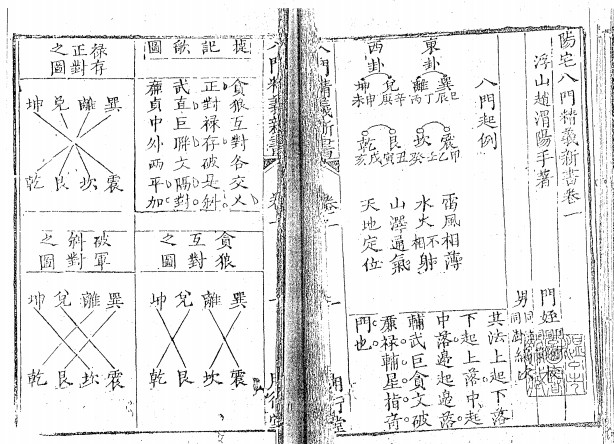 陽宅八門精義新書卷一
浮山趙渭陽手著
門姪
男同
八門起例
東卦
西卦
巽 離 兌 坤
巳 丁丙 辛庚 申未
震 坎 艮 乾
甲乙 壬癸 丑寅 戌亥
雷風相薄
水火相不射
山澤通氣
天地定位
其法上起下落
下起上落中起
中落邊起邊落
輔武巨貪文破
廉祿輔星指背
門也
八門精義新書
卷一
捷記歌圖
貪狼互對各交乂
正對祿存破是斜
武直巨聯文隔對
廉貞中外兩平加
貪狼互對之圖
巽 離 兌 坤
震 坎 艮 乾
祿存正對之圖
巽 離 兌 坤
震 坎 艮 乾
破軍斜對之圖
巽 離 兌 坤
震 坎 艮 乾